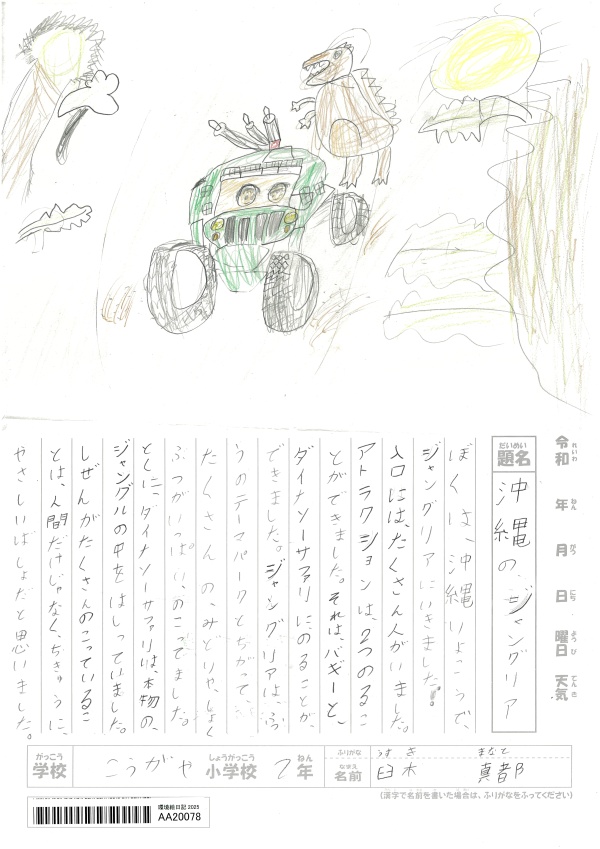 令和 年 月 日 曜日 天気
れいわ ねん がつ にち ようび てんき
だいめい
題名
沖縄の、ジャングリア
ぼくは、沖縄りょこうで、
ジャングリアにいきました!
入口には、たくさん人がいます。
アトラクションは、2つのるこ
とができました。それは、バギーと、
ダイナソーサファリにのることが、
できました。ジャングリアは、ふつ
うのテーマパークとちがって、
たくさんの、みどりや、しょく
ぶつがいっぱい、のこってました。
とくに、ダイナソーサファリは、本物の、
ジャングルの中をはしっていました。
しぜんがたくさんのこっているこ
とは、人間だけじゃなく、ちきゅうに、
やさしいばしょだと思いました。
がっこう しょうがっこう ねん ふりがな うすき まなと
学校 こうがや 小学校 2年
なまえ
名前 臼木
(漢字で名前を書いた場合は、ふりがなをふってください)
環境絵日記 2025
AA20078